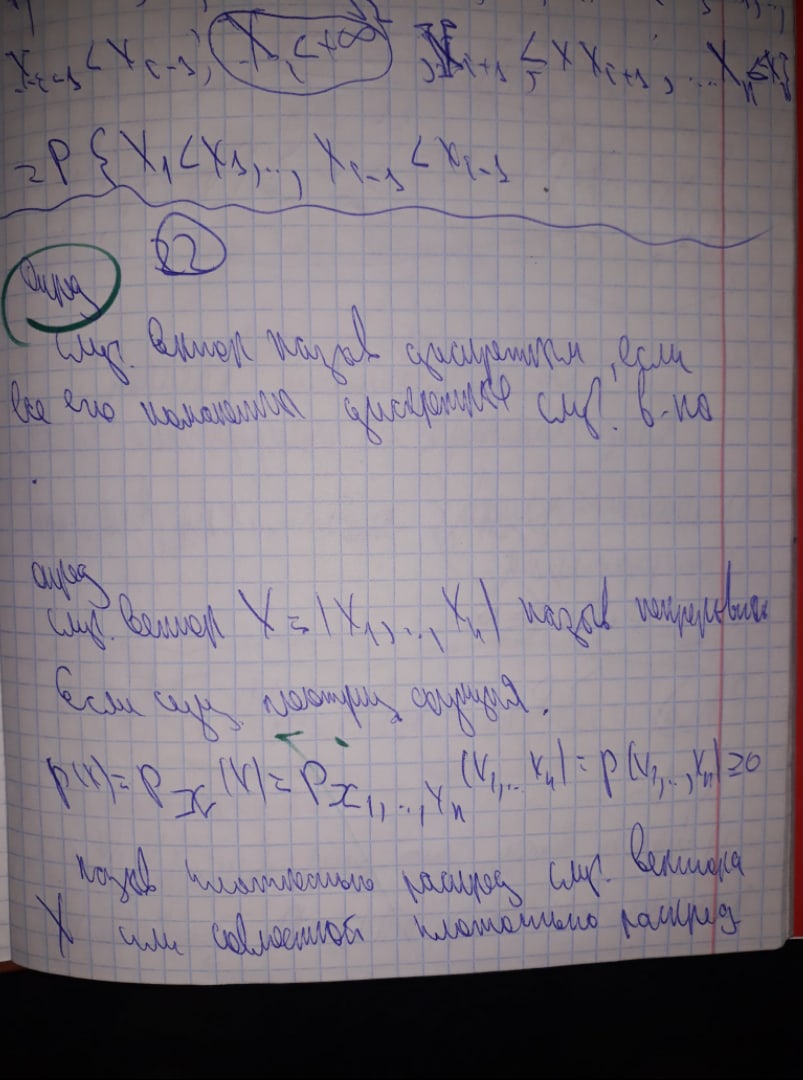 X_{i-1} < x_{i-1}, X_i < +∞, X_{i+1} < x_{i+1}, ... X_n < x_n}
= P { X_1 < x_1, .., X_{i-1} < x_{i-1}
22
Опред
Случ. вектор назыв дискретным, если
все его компоненты дискретные случ. в-на
опред
Случ. вектор X = (X_1, .., X_n) назыв непрерывн
Если сущ. функция.
p(x) = p_X (x) = p_{x_1, .., x_n} (x_1, .. x_n) = p(x_1, .., x_n) ≥ 0
назыв плотностью распред случ. вектора
X или совместной плотностью распред